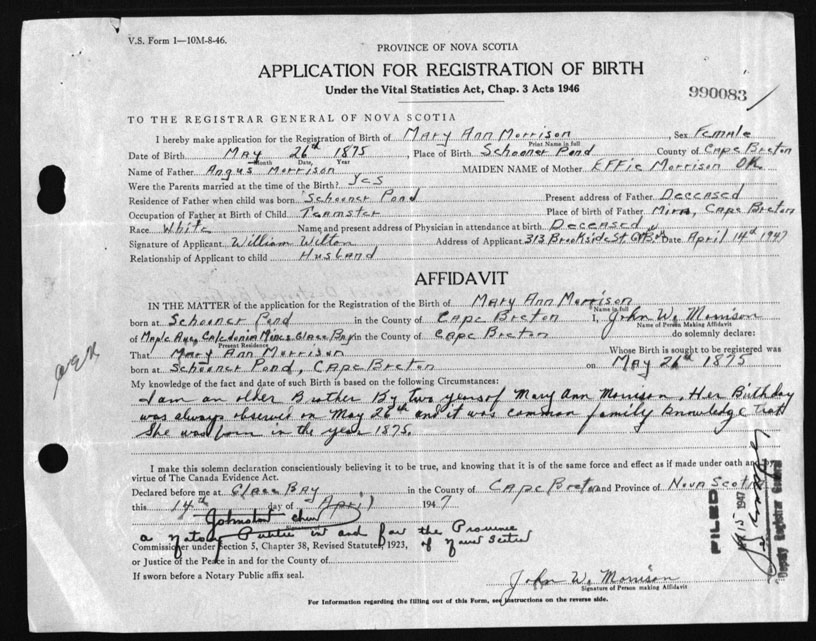 V.S. Form 1—10M-8-46.
PROVINCE OF NOVA SCOTIA
APPLICATION FOR REGISTRATION OF BIRTH
Under the Vital Statistics Act, Chap. 3 Acts 1946
990083
TO THE REGISTRAR GENERAL OF NOVA SCOTIA
I hereby make application for the Registration of Birth of Mary Ann Morrison, Sex Female
Print Name in full
Date of Birth May 26th 1875, Place of Birth Schooner Pond County of Cape Breton
Month Date, Year
Name of Father Angus Morrison MAIDEN NAME of Mother Effie Morrison OK
Were the Parents married at the time of the Birth? Yes
Residence of Father when child was born Schooner Pond Present address of Father Deceased
Occupation of Father at Birth of Child Teamster Place of birth of Father Mira, Cape Breton
Race White Name and present address of Physician in attendance at birth Deceased
Signature of Applicant William Wilton Address of Applicant 313 Brookside St. Date April 14th 1947
Relationship of Applicant to child Husband
AFFIDAVIT
IN THE MATTER of the application for the Registration of the Birth of Mary Ann Morrison
Name in full
born at Schooner Pond in the County of Cape Breton I, John W. Morrison
Name of Person Making Affidavit
of Maple Ave, Caledonia Mines Glace Bay in the County of Cape Breton do solemnly declare:
Present Residence
That Mary Ann Morrison Whose Birth is sought to be registered was
born at Schooner Pond, Cape Breton on May 26th 1875
My knowledge of the fact and date of such Birth is based on the following Circumstances:
I am an older Brother By two years of Mary Ann Morrison. Her Birthday
was always observed on May 26th and it was common family knowledge that
she was born in the year 1875.
I make this solemn declaration conscientiously believing it to be true, and knowing that it is of the same force and effect as if made under oath and by
virtue of The Canada Evidence Act.
Declared before me at Glace Bay in the County of Cape Breton and Province of Nova Scotia
this 14th day of April 1947
Signature
a Notary Public in and for the Province
of Nova Scotia
Commissioner under Section 5, Chapter 38, Revised Statutes, 1923,
or Justice of the Peace in and for the County of
If sworn before a Notary Public affix seal.
John W. Morrison
Signature of Person making Affidavit
For Information regarding the filling out of this Form, see instructions on the reverse side.
FILED
15 1947
Deputy Registrar General